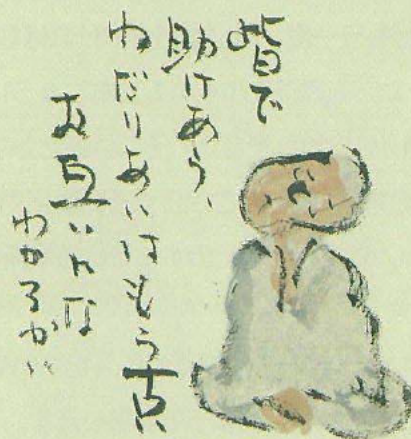 皆で
助けあう、
ねだりあいはもう古い
お互いにな
わかるかい